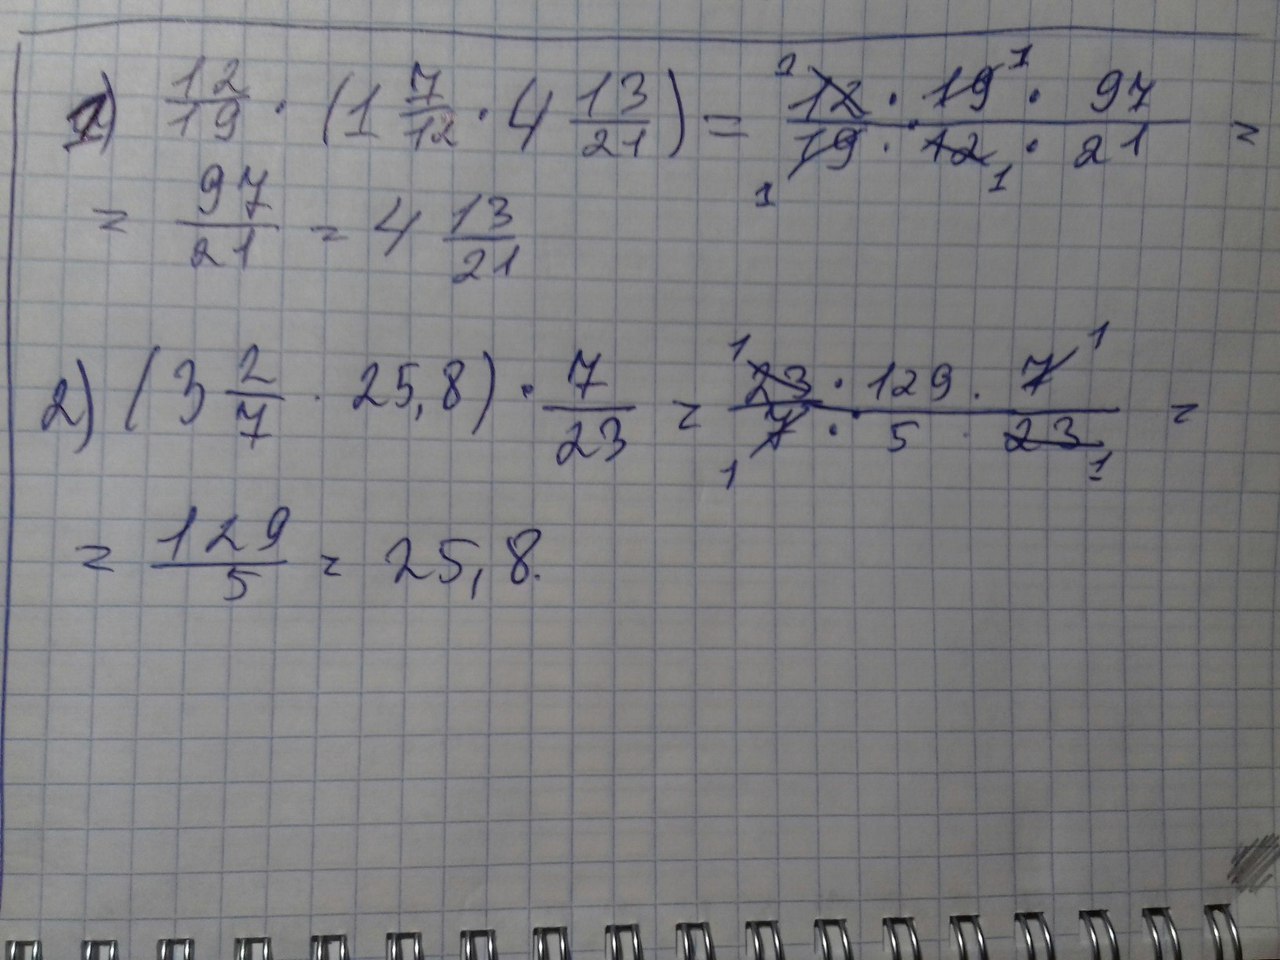 1) 12/19 · (1 7/12 · 4 13/21) = 12 · 19 · 97 / 19 · 12 · 21 =
= 97/21 = 4 13/21
2) (3 2/7 · 25,8) · 7/23 = 23 · 129 · 7 / 7 · 5 · 23 =
= 129/5 = 25,8.